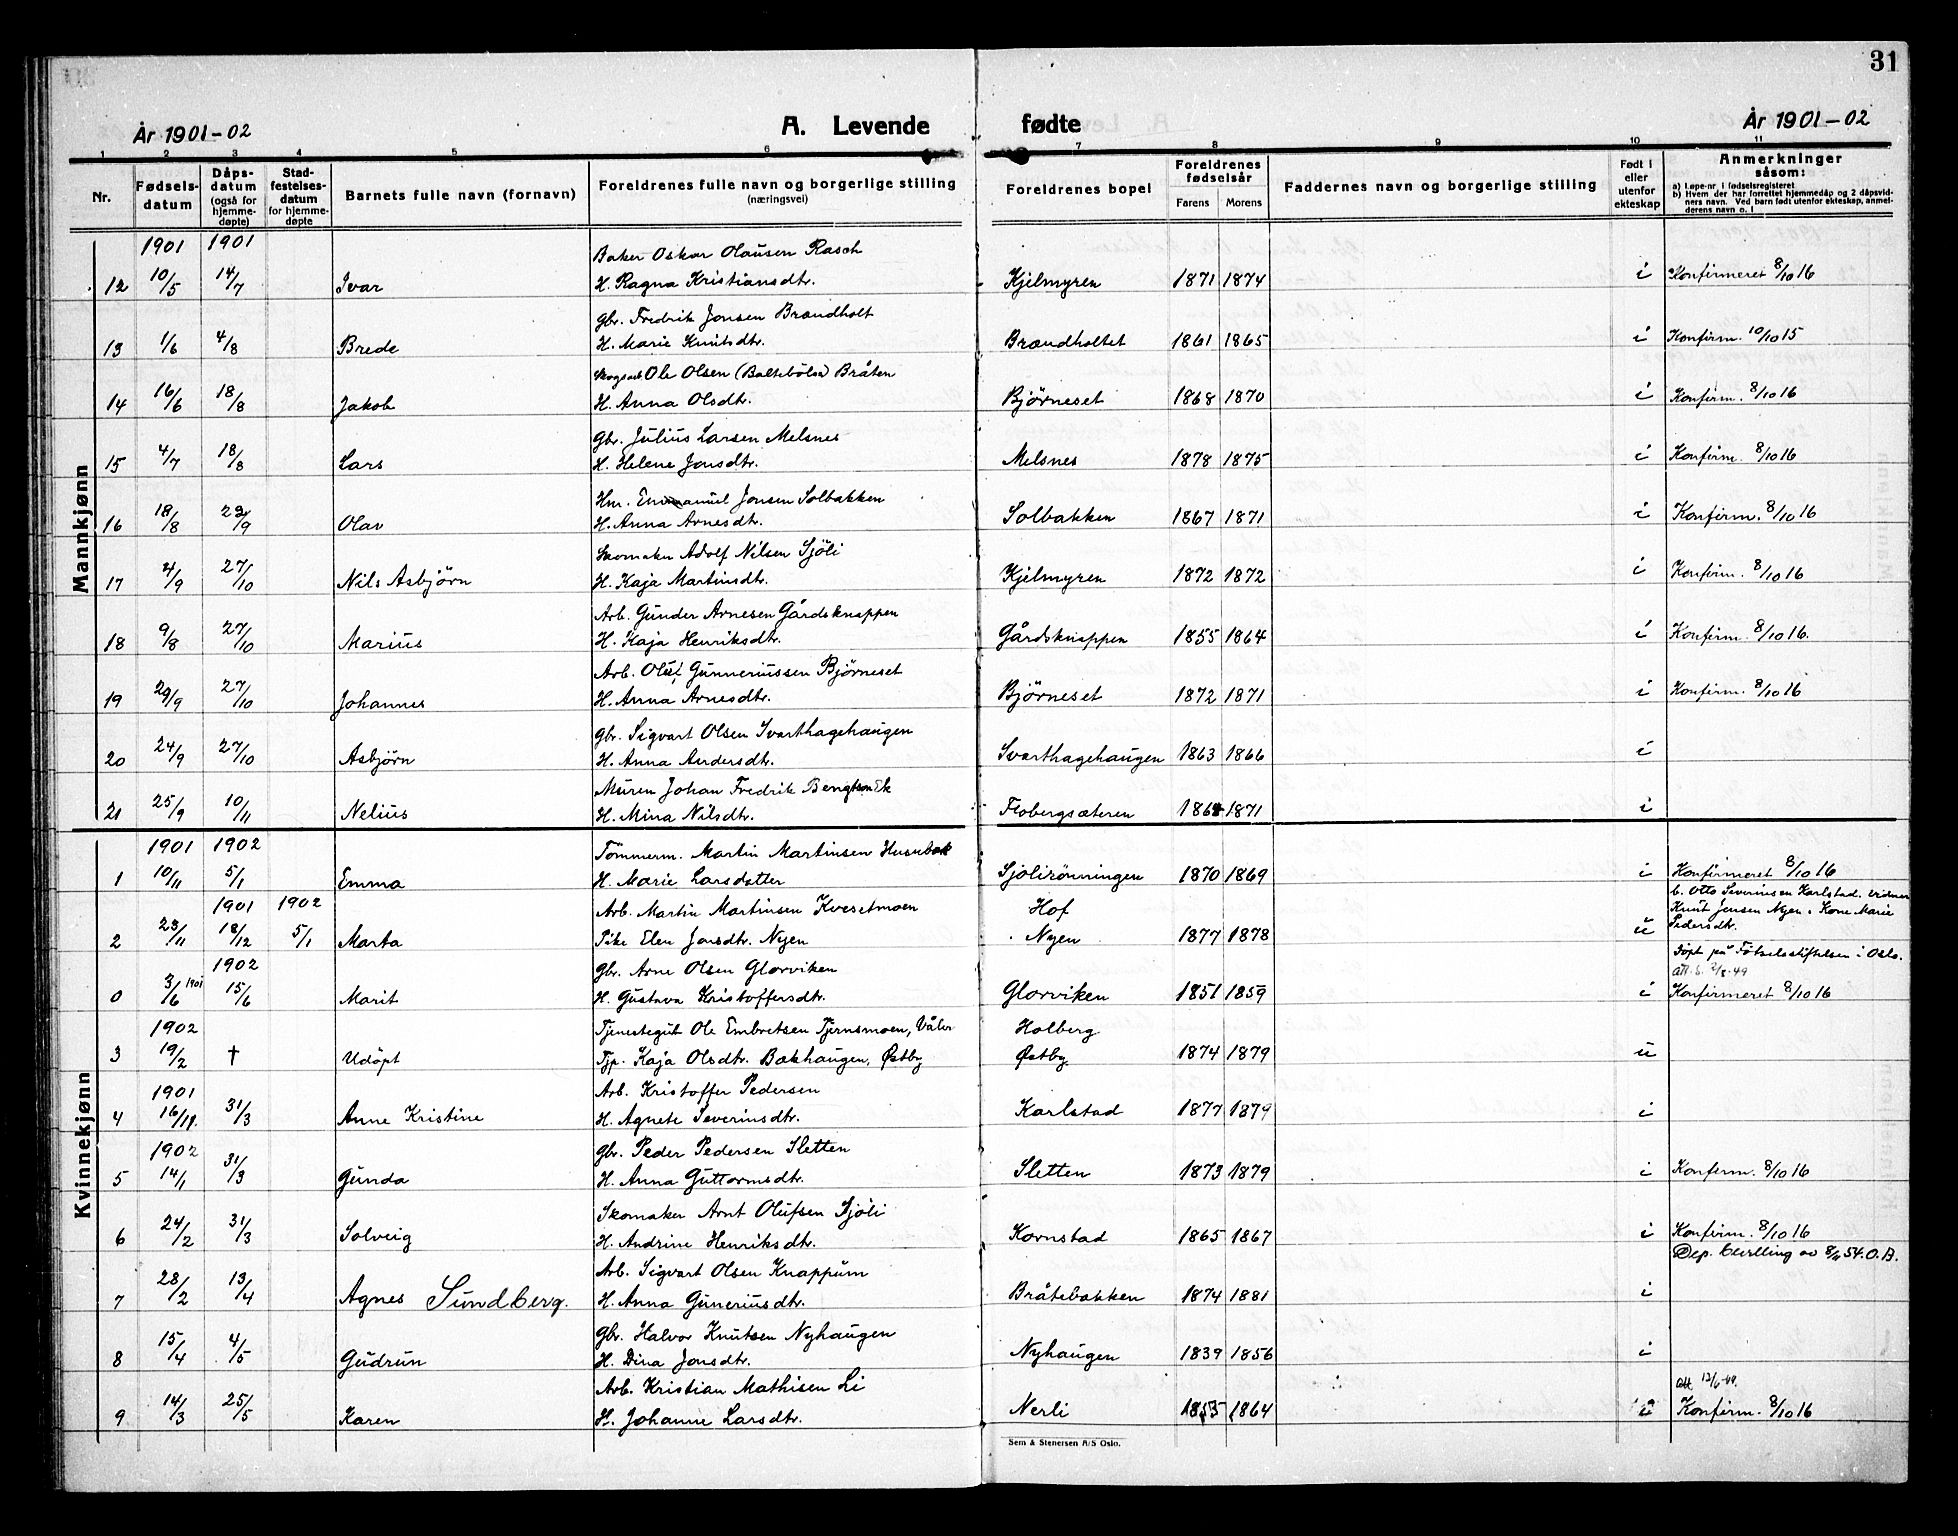 31
År 1901-02 A. Levende fødte År 1901-02
1 2 3 4 5 6 7 8 9 10 11
Nr. Fødsels-datum Dåps-datum (også for hjemme-døpte) Stad-festelses-datum for hjemme-døpte Barnets fulle navn (fornavn) Foreldrenes fulle navn og borgerlige stilling (næringsvei) Foreldrenes bopel Foreldrenes fødselsår Farens Morens Faddernes navn og borgerlige stilling Født i eller utenfor ekteskap Anmerkninger såsom: a) Løpe-nr. i fødselsregisteret b) Hvem der har forrettet hjemmedåp og 2 dåpsvidners navn. Ved barn født utenfor ekteskap, anmelderens navn o. l
Mannkjønn
1901 1901 Baker Oskar Olausen Rasch
12 10/5 14/7 Ivar H. Ragna Kristiansdtr. Kjelmyren 1871 1874 i Konfirmeret 8/10 16
Gbr. Fredrik Jonsen Brændholt
13 1/6 4/8 Brede H. Marie Knutsdtr. Brændholtet 1861 1865 i Konfirm. 10/10 15
Skogsarb Ole Olsen (Baltebölsa) Bråten
14 16/6 18/8 Jakob H. Anna Olsdtr. Björneset 1868 1870 i Konfirm. 8/10 16
Gbr. Julius Larsen Melsnes
15 4/7 18/8 Lars H. Helene Jonsdtr. Melsnes 1878 1875 i Konfirm. 8/10 16
Hm. Emanuel Jonsen Solbakken
16 18/8 /9 Olav H. Anna Arnesdtr. Solbakken 1867 1871 i Konfirm. 8/10 16
Skomaker Adolf Nilsen Sjöli
17 4/9 27/10 Nils Asbjörn H. Kaja Martinsdtr. Kjelmyren 1872 1872 i Konfirm. 8/10 16
Arb. Gunder Arnesen Gårdsknappen
18 9/8 27/10 Marius H. Kaja Henriksdtr. Gårdsknappen 1855 1864 i Konfirm. 8/10 16.
Arb. Oluf Gunneriussen Björneset
19 29/9 27/10 Johannes H. Anna Arnesdtr. Björneset 1872 1871 i Konfirm. 8/10 16
Gbr. Sigvart Olsen Svarthagehaugen
20 24/9 27/10 Asbjörn H. Anna Andersdtr. Svarthagehaugen 1863 1866 i
Murer Johan Fredrik Bengtson Ek
21 25/9 10/11 Nelius H. Mina Nilsdtr. Flobergsæteren 1871 i
Kvinnekjønn
1901 1902 Tömmerm. Martin Martinsen Husubak
1 10/11 5/1 Emma H. Marie Larsdatter Sjölirönningen 1870 1869 i Konfirmeret 8/10 16
1901 1902 Arb. Martin Martinsen Kvesetmoen Hof b. Otto Severinsen Karlstad. Vidner
Knut Jensen Nyen o Kone Marie
2 23/11 18/12 5/1 Marta Pike Elen Jonsdtr. Nyen Nyen 1877 1878 u Pedersdtr.
1902 Gbr. Arne Olsen Glorviken Döpt på Fötselsstiftelsen i Oslo.
att. s. 2/8-49
0 3/6 1901 15/6 Marit H. Gustava Kristoffersdtr. Glorviken 1851 1859 i Konfirmeret 8/10 16
1902 Tjenestegut Ole Embretsen Tjernsmoen, Våler Holberg
3 19/2 † Udöpt Tjp. Kaja Olsdtr. Bakhaugen, Østby Østby 1874 1879 u
1901 Arb. Kristoffer Pedersen
4 16/11. 31/3 Anne Kristine H. Agnete Severinsdtr. Karlstad 1877 1879 i
1902 Gbr. Peder Pedersen Sletten
5 14/1 31/3 Gunda H. Anna Guttormsdtr. Sletten 1873 1879 i Konfirm. 8/10 16
Skomaker Arnt Olufsen Sjöli
6 24/2 31/3 Solveig H. Andrine Henriksdtr. Kornstad 1865 1867 i Konfirm. 8/10 16
Arb. Sigvart Olsen Knappum Dep. bevilling av 8/11 54. O.A.
7 28/2 13/4 Agnes Sundberg. H. Anna Guneriusdtr. Bråtebakken 1874 1881 i
Gbr. Halvor Knutsen Nyhaugen
8 15/4 4/5 Gudrun H. Dina Jonsdtr. Nyhaugen 1839 1856 i
Arb. Kristian Mathisen Li Att. 13/6-49.
9 14/3 25/5 Karen H. Johanne Larsdtr. Nerli 1853 1864 Konfirm. 8/10 16
Sem & Stenersen A/S Oslo.